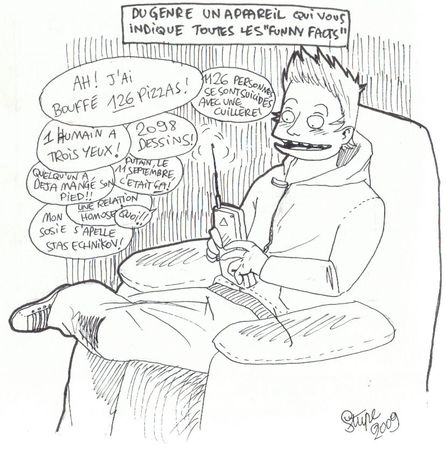 DU GENRE UN APPAREIL QUI VOUS
INDIQUE TOUTES LES "FUNNY FACTS"
AH! J'AI
BOUFFÉ 126 PIZZAS!
126 PERSONNES
SE SONT SUICIDÉS
AVEC UNE
CUILLÈRE!
1 HUMAIN A
TROIS YEUX!
2098
DESSINS!
QUELQU'UN A
DÉJÀ MANGÉ SON
PIED!!
PUTAIN, LE
11 SEPTEMBRE,
C'ETAIT
UNE RELATION
HOMOSE QUOI!!
MON
SOSIE S'APPELLE
STAS ECHNIKOV!
Stupe
2009